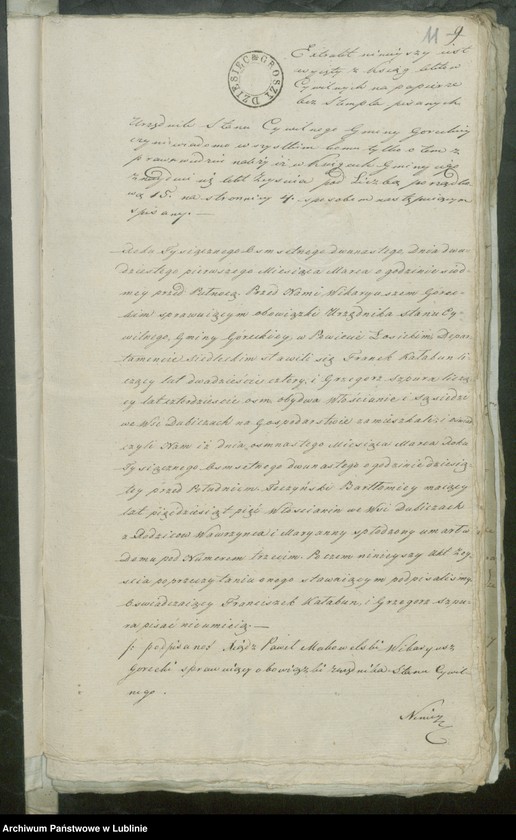 11 9
Extrakt ninieyszy iest
wyięty z Xsiąg Aktow
Cywilnych na papierze
bez Stempla pisanych
DZIESIĘC GROSZY
Urzędnik Stanu Cywilnego Gminy Goreckiey
czyni wiadomo wszystkim komu tylko o tem z
prawa wiedzieć należy iż w Xięgach Gminy iego
znayduie się Akt Zeyscia pod Liczbą porządko
wą 15. na stronnicy 4. sposobem następuiącym
spisany.—
Roku Tysiącznego Osmsetnego dwunastego, dnia dwu-
dziestego pierwszego Miesiąca Marca o godzinie siod-
mey przed Połnocą. Przed Nami Wikaryuszem Górec-
kim sprawuiącym obowiązki Urzędnika Stanu Cy-
wilnego, Gminy Góreckiey, w Powiecie Łosickim, Depar-
tamencie Siedleckim stawili się Franek Kałabun li-
czący lat dwadzieście cztery, i Grzegorz Szpura liczą-
cy lat czterdzieście osm, obydwa Włościanie, i Sąsiedzi
we Wsi Dubiczach na Gospodarstwie zamieszkali, i oświad-
czyli Nam iż dnia osmnastego Miesiąca Marca Roku
Tysiącznego Osmsetnego dwunastego o godzinie dziesią-
tey przed Południem, Bartłomiey maiący
lat pięćdziesiąt pięć Włościanin we Wsi Dubiczach
z Rodzicow Wawrzynca i Maryanny spłodzony umarł w
domu pod Numerem trzecim. Poczem ninieyszy Akt Zey-
scia po przeczytaniu onego stawaiącym podpisaliśmy.
Oswiadczaiący Franciszek Kałabun, i Grzegorz Szpu-
ra pisać nieumieią—
podpisano Xiądz Paweł Makowelski Wikaryusz
Gorecki sprawuiący obowiązki Urzędnika Stanu Cywil-
nego.
Archiwum Państwowe w Lublinie